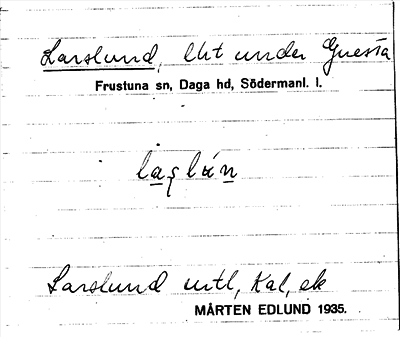 Larslund, lht under Gnesta
Frustuna sn, Daga hd, Södermanl. l.
la̲ṣlu̇́n̲
Larslund mtl, Kal, ek
MÅRTEN EDLUND 1935.